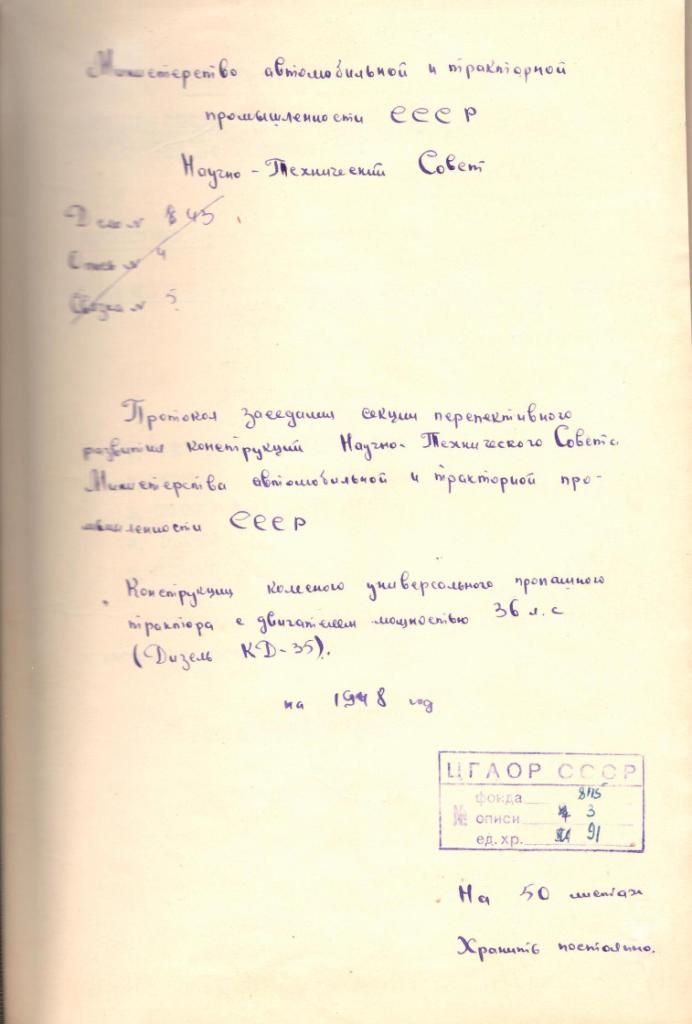 Министерство автомобильной и тракторной
промышленности СССР
Научно-Технический Совет
Дело № 843
Опись № 4
Связка № 5
Протокол заседания секции перпективного
развития конструкций Научно-Технического Совета
Министерства автомобильной и тракторной про-
мышленности СССР
Конструкции колесного универсального пропашного
трактора с двигателем мощностью 36 л.с
(Дизель КД-35).
на 1948 год
ЦГАОР СССР
фонда 8115
№ описи 3
ед. хр. 91
На 50 листах
Хранить постоянно.